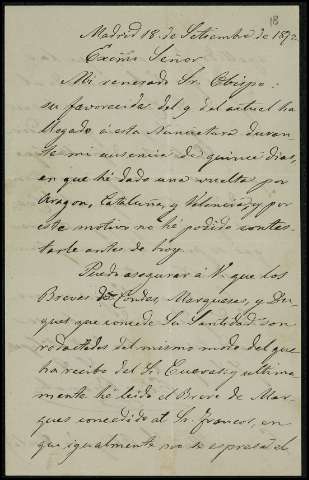 18
Madrid 18. de Setiembre de 1892.
Excmo Señor
Mi venerado Sr. Obispo:
su favorecida del 9 del actual ha
llegado à esta Nunciatura duran
te mi ausencia de quince dias,
en que hé dado una vuelta por
Aragon, Cataluña, y Valencia, y por
este motivo no hé podido contes
tarle antes de hoy.
Puedo asegurar à V. que los
Breves de Condes, Marqueses, y Du
ques que concede Su Santidad son
redactados del mismo modo del que
ha recibo del Sr. Cuevas, y ultima
mente hé leido el Breve de Mar
ques concedido al Sr. Francos, en
que igualmente no se espresa el